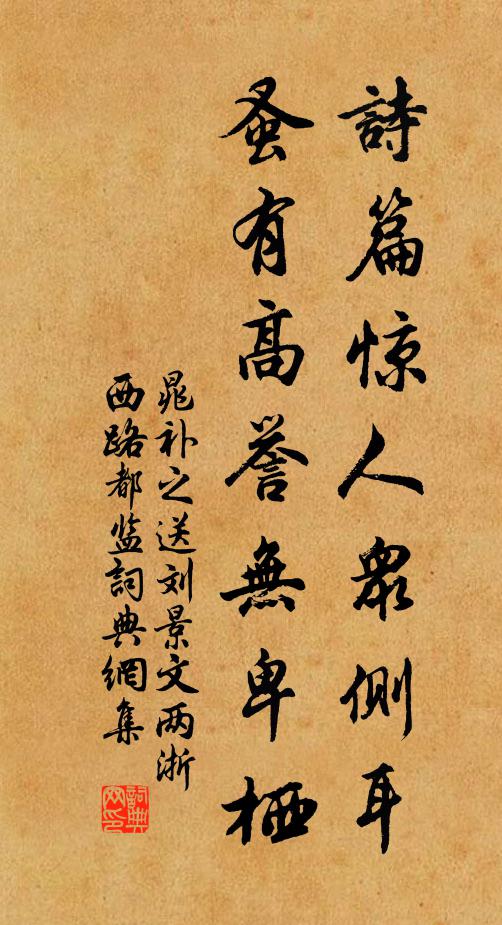 詩篇惊人衆側耳
蚤有高誉無卑栖
晁补之送刘景文两浙
西路都监詞典網集
詞典網印